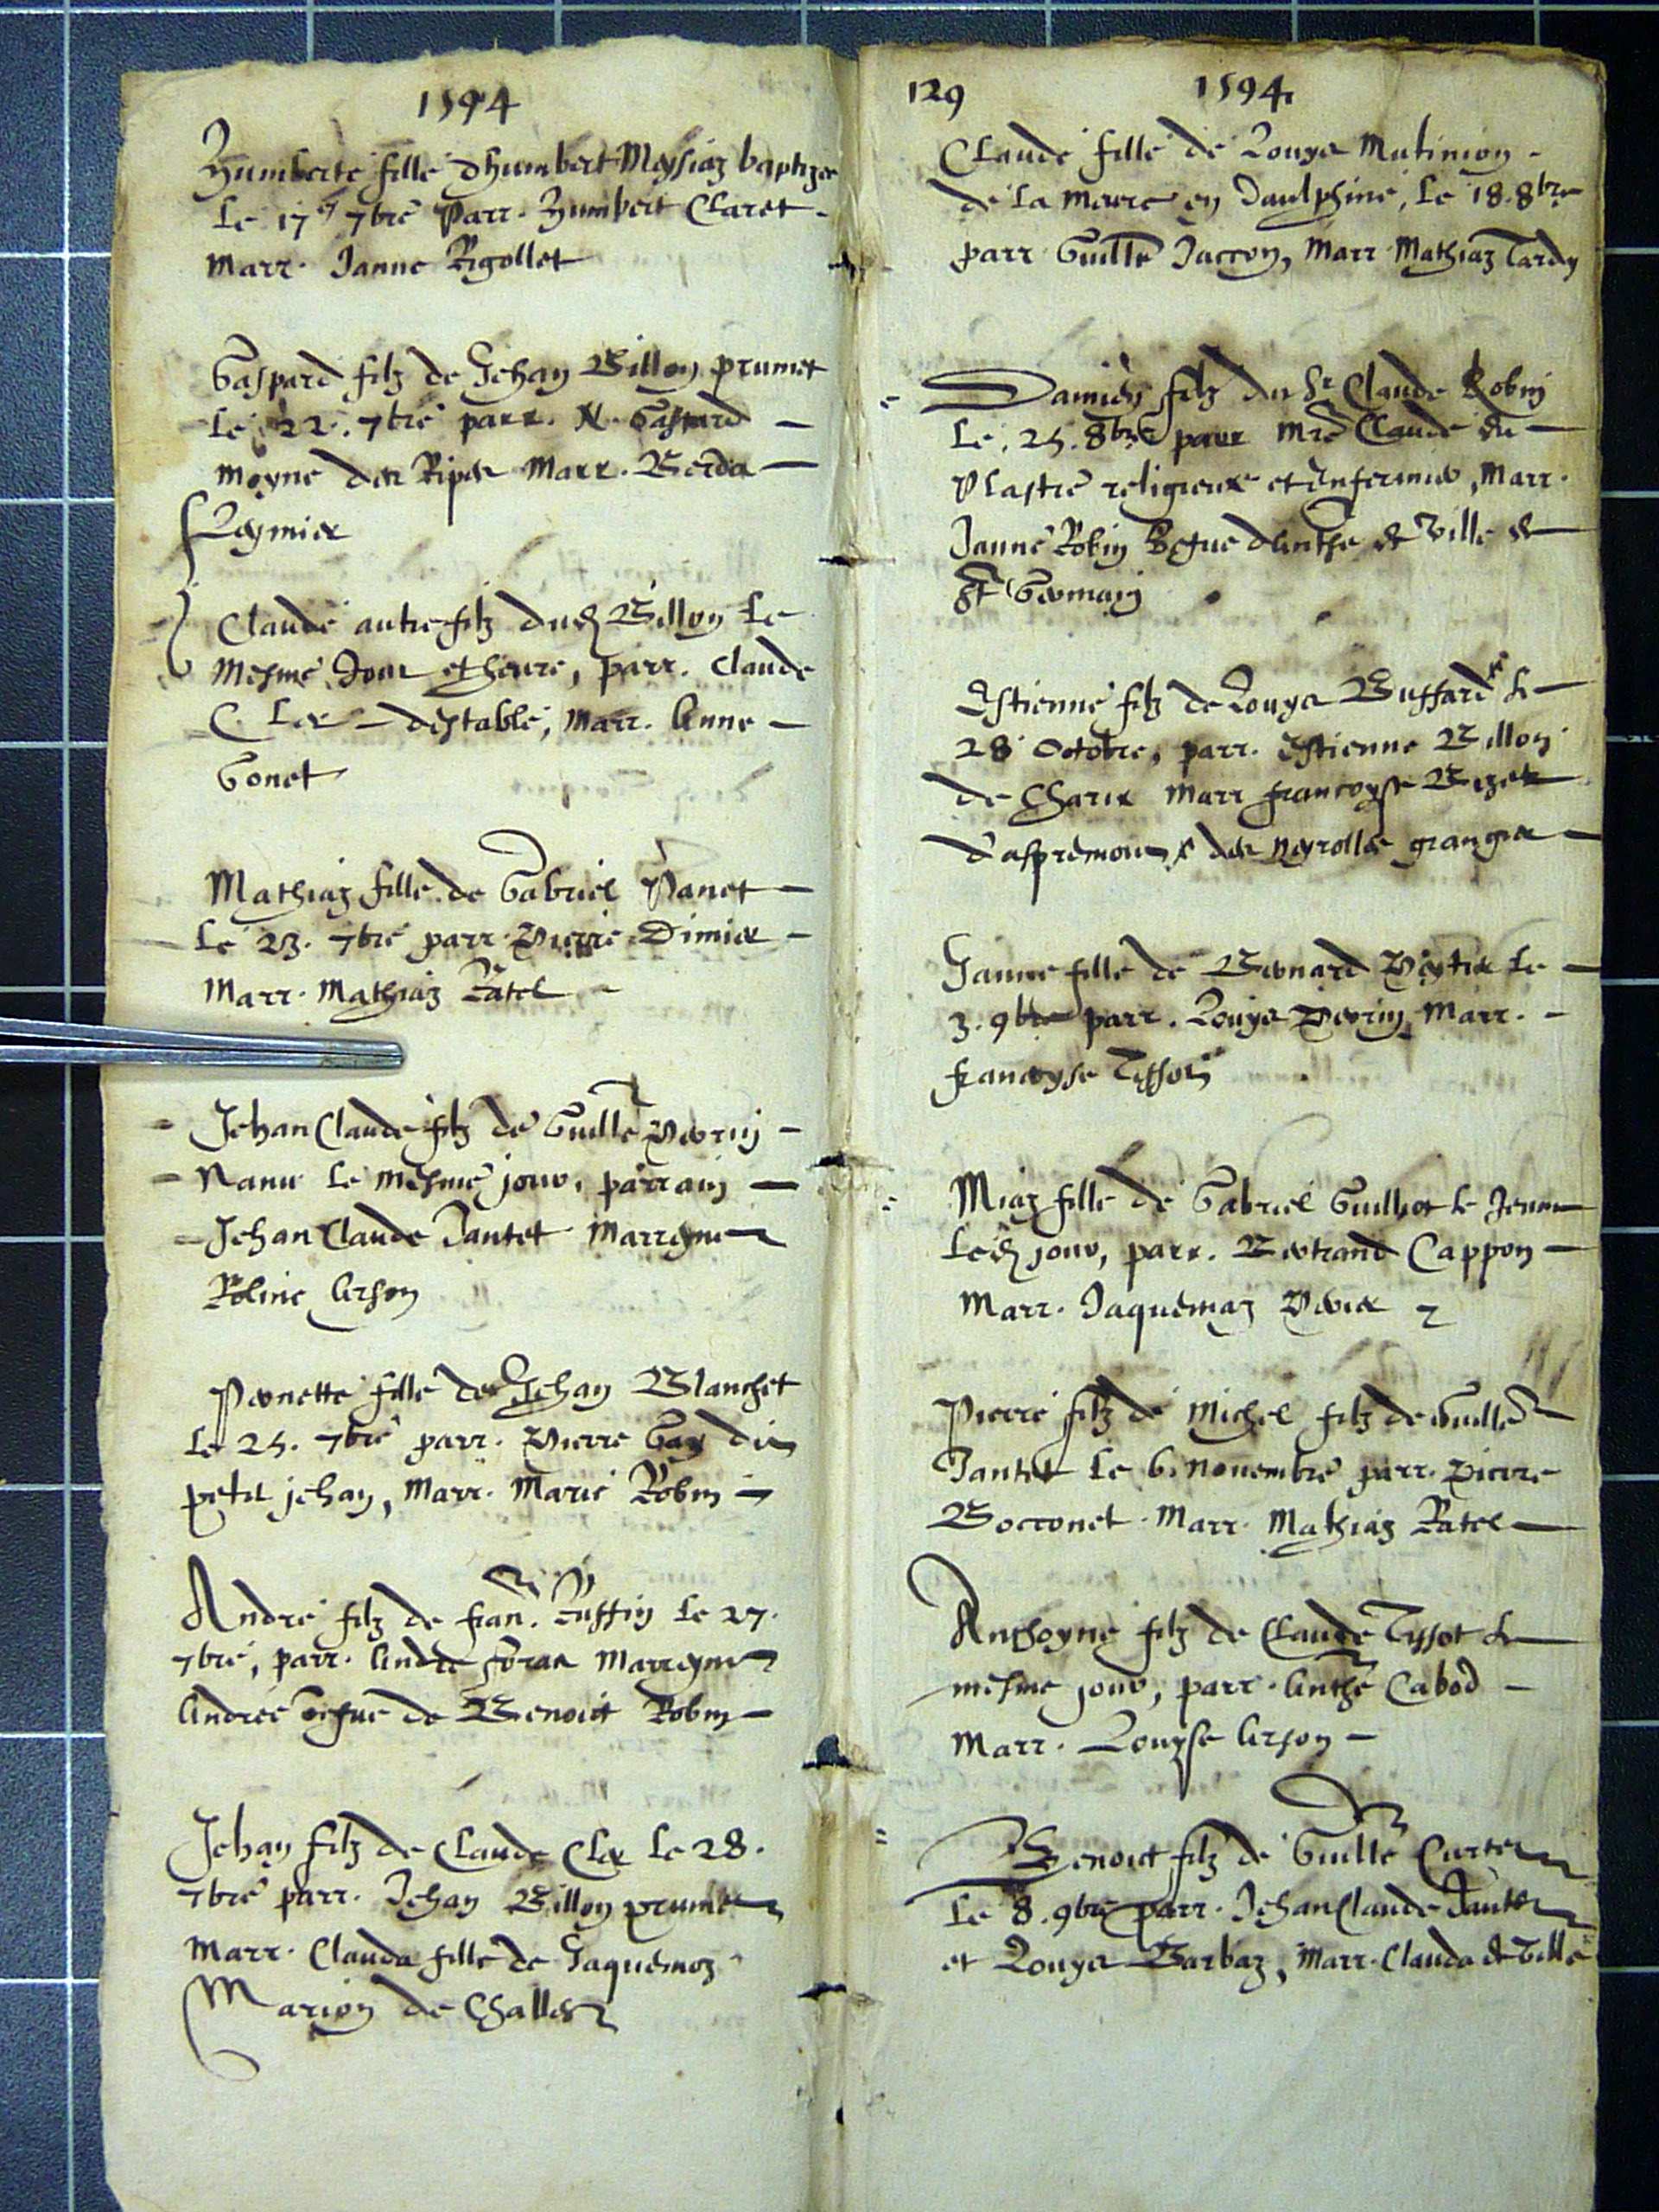 1594
Humberte fille d'humbert Meysiaz baptizee
Le 17e 7bre Parr. Humbert Claret -
Marr. Janne Rigollet
Gaspard filz de Jehan Billon prumet
Le 22. 7bre parr. N. Gaspard -
moyne des Ripes Marr. Berda -
Reymier
Claude autre filz dud Billon Le
mesme Jour et heure, parr. Claude
Cler - destable, Marr. Anne -
Gonet
Mathiaz fille de Gabriel Panet -
Le 23. 7bre parr. Pierre Dimier -
Marr. Mathiaz Ratel -
- Jehan Claude filz de Guille Perrin -
- Nanu Le mesme jour, parrain -
- Jehan Claude Jantet Marreyne
Roline Arson
Pernette fille de Jehan Blanchet
Le 25. 7bre parr. Pierre Gay dit
petit jehan, Marr. Marie Robin -
André filz de Fran. Ruffin Le 27.
7bre, parr. André Foras Marreyne
Andree vefue de Benoict Robin -
Jehan filz de Claude Cler Le 28.
7bre parr. Jehan Billon prumet
Marr. Clauda fille de Jaquemoz
Marion de Challes
129 1594
Claude fille de Louys Mutinion -
de La meure en Daulphiné, Le 18. 8bre
parr Guille Jarron, Marr Mathiaz Tardy
= Damien filz du Sr Claude Robin
Le 25. 8bre parr Mre Claude du -
Plastre religieux et Infermier, Marr.
Janne Robin vefue d'Anthe de Ville de
St Germain
Estienne filz de Louys Buffard Le -
28 Octobre, parr. Estienne Billon
de Charix Marr francoyse Bezet
d'aspremont des neyrolles granger -
Janne fille de Bernard Peytier Le -
3. 9bre parr. Louys Perrin Marr. -
francoyse Tissot
= Miaz fille de Gabriel Guilliot Le Jeune
Led jour, parr. Bertrand Cappon -
Marr. Jaquemaz Perier
Pierre filz de Michel filz de Guille
Jantet Le 6. Nouembre parr. Pierre
Bocconet Marr. Mathiaz Ratel -
Anthoyne filz de Claude Tissot Le -
mesme jour, parr. Anthe Cabod -
Marr. Louyse Arson -
= Benoict filz de Guille Curtet
Le 8. 9bre parr. Jehan Claude Jantet
et Louys Barbaz, Marr. Clauda de Ville